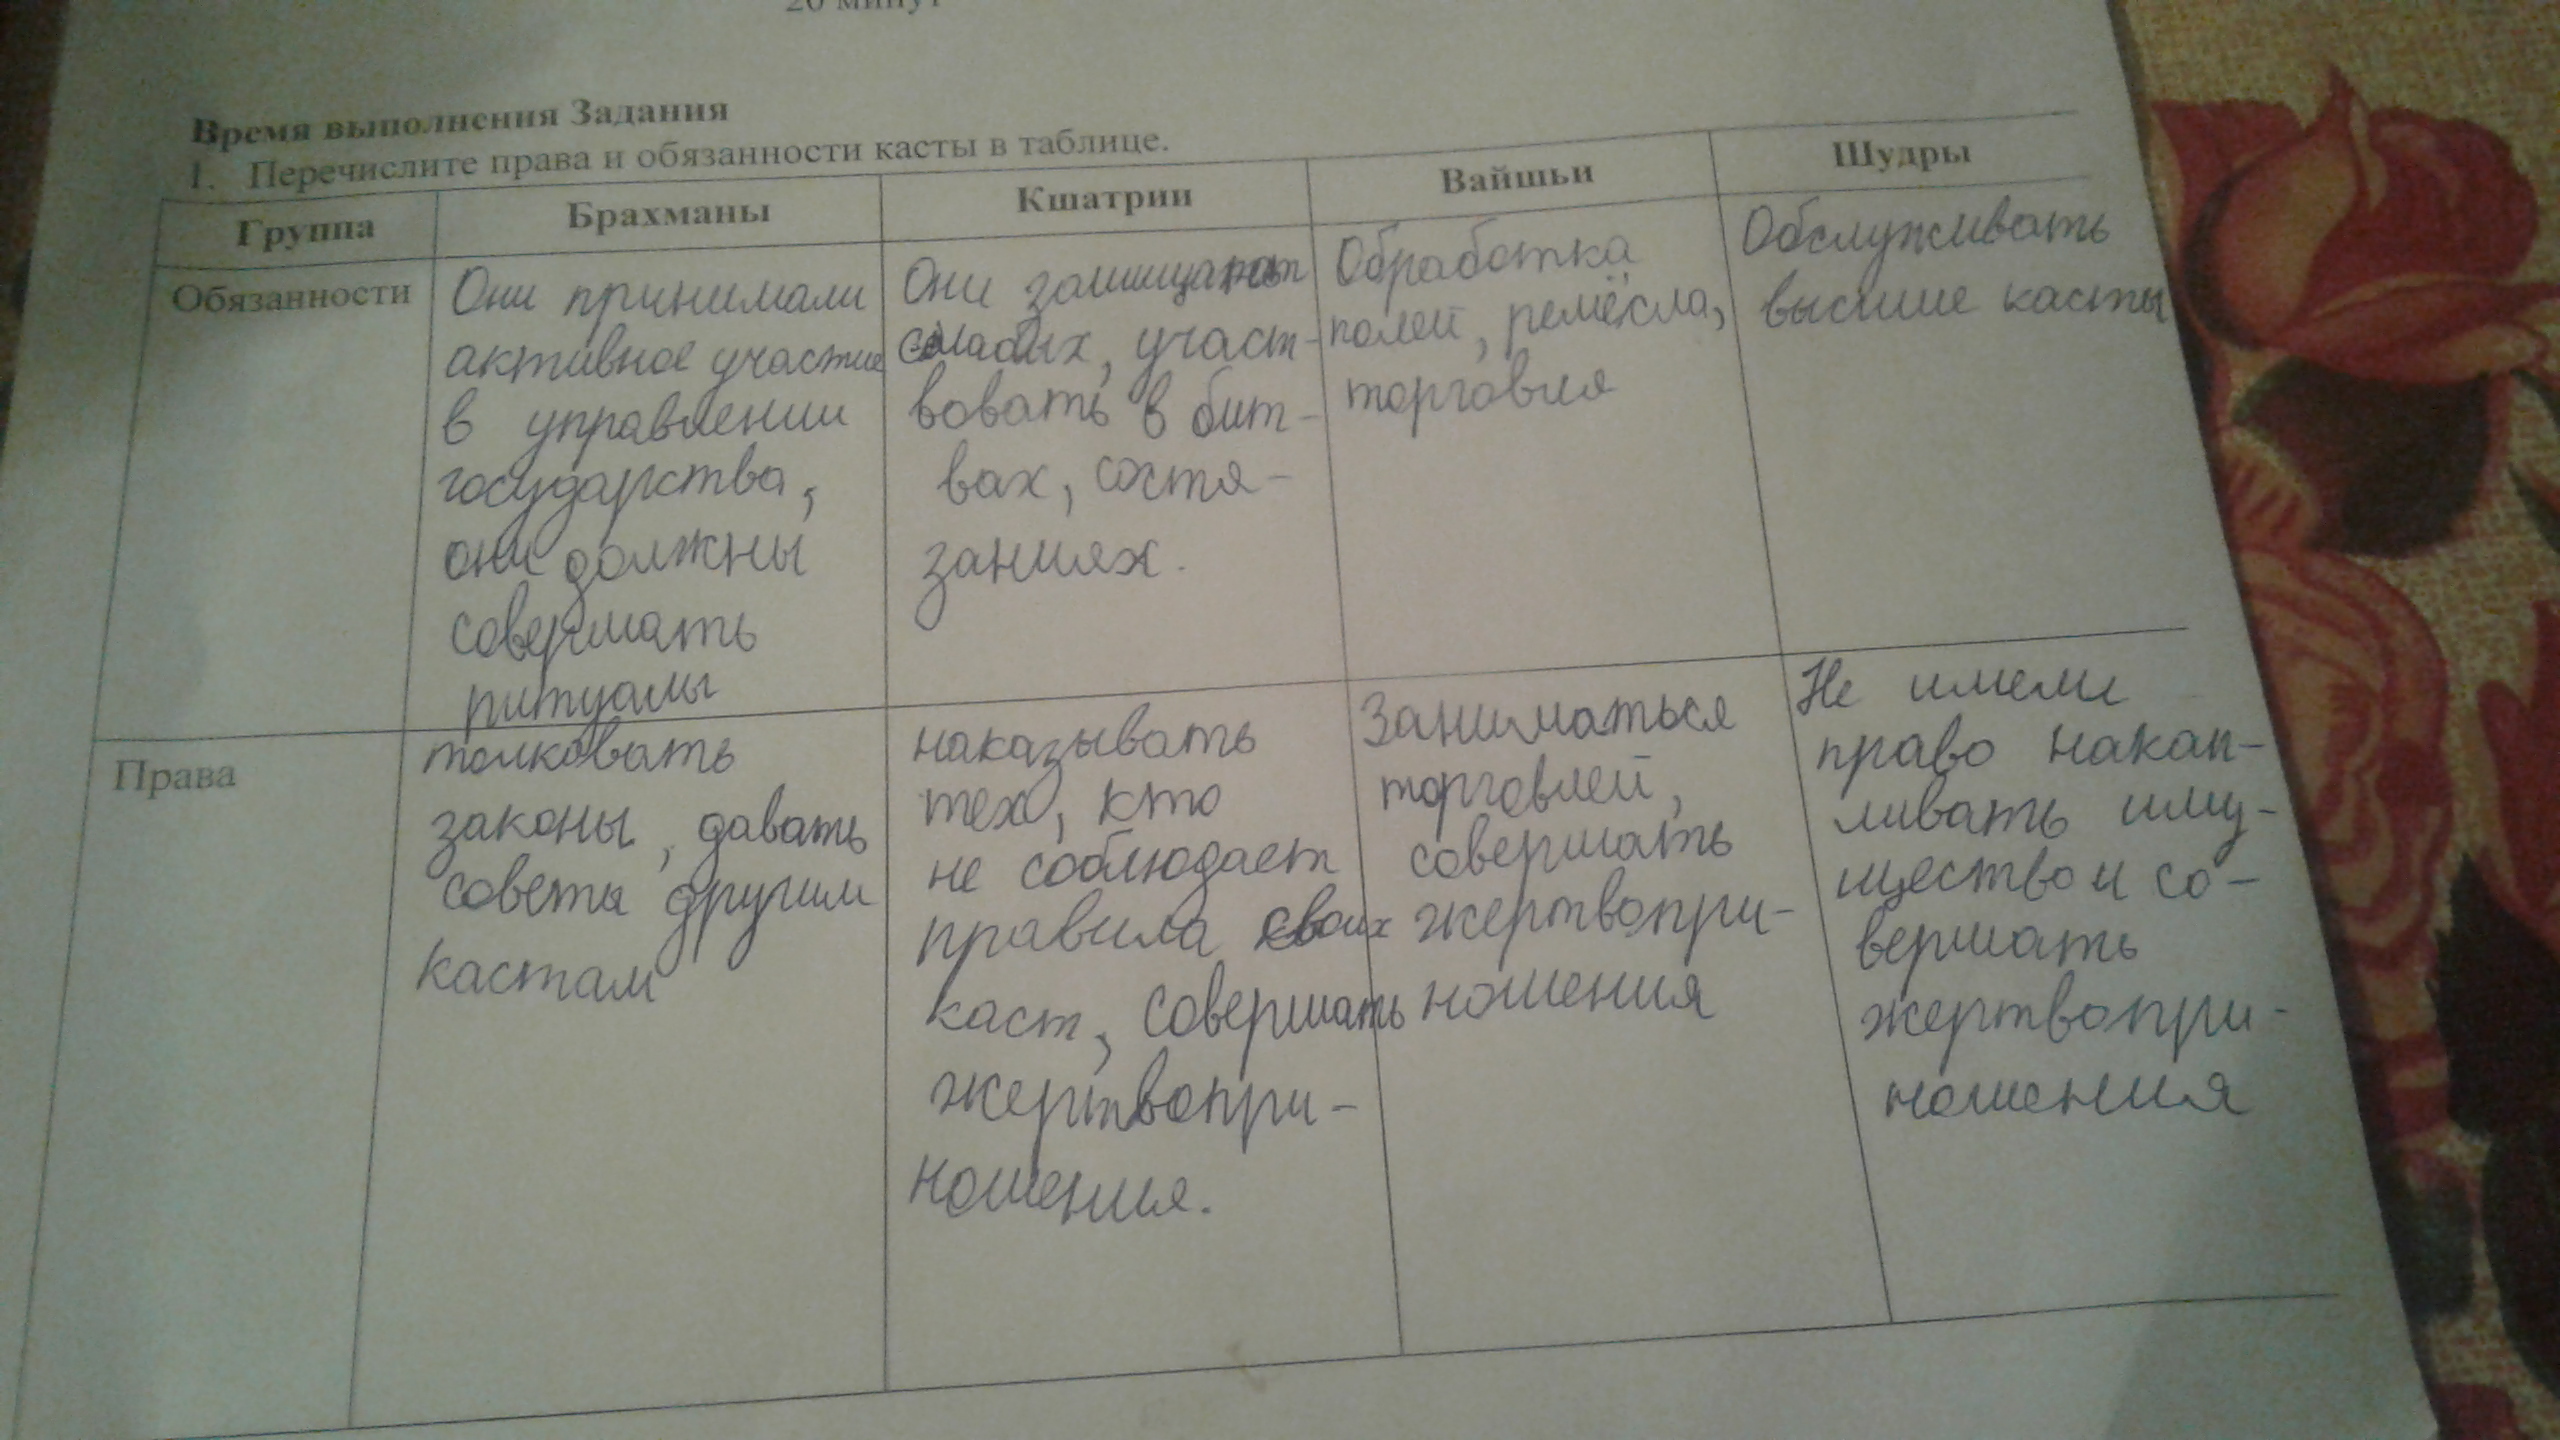 20 минут
Время выполнения Задания
1. Перечислите права и обязанности касты в таблице.
Группа
Брахманы
Кшатрии
Вайшьи
Шудры
Обязанности
Они принимали
активное участие
в управлении
государства,
они должны
совершать
ритуалы
Они защищают
слабых, участ-
вовать в бит-
вах, состя-
заниях.
Обработка
полей, ремёсла,
торговля
Обслуживать
высшие касты
Права
толковать
законы, давать
советы другим
кастам
наказывать
тех, кто
не соблюдает
правила своих
каст, совершать
жертвопри-
ношения.
Заниматься
торговлей,
совершать
жертвопри-
ношения
Не имели
право накап-
ливать иму-
щество и со-
вершать
жертвопри-
ношения